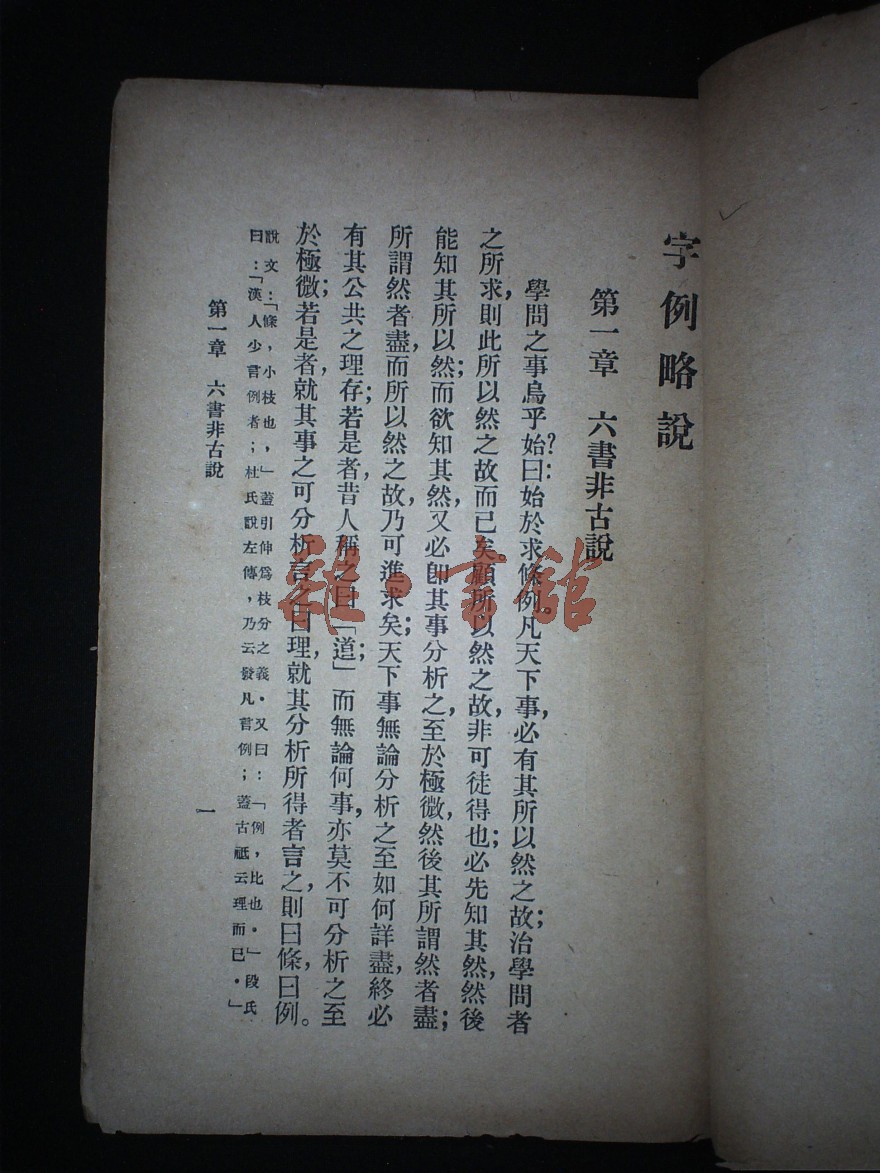 字例略說
第一章　六書非古說
學問之事烏乎始?:曰始於求條例。凡天下事,必有其所以然之故;治學問者
之所求,則此所以然之故而已矣。顧所以然之故,非可徒得也;必先知其然,然後
能知其所以然;而欲知其然,又必卽其事分析之,至於極微,然後其所謂然者盡;
所謂然者盡,而所以然之故,乃可進求矣;天下事無論分析之至如何詳盡,終必
有其公共之理存;若是者,昔人稱之曰「道」;而無論何事,亦莫不可分析之至
於極微;若是者,就其事之可分析言之曰理,就其分析所得者言之,則曰條,曰例。
說文:「條,小枝也,」蓋引伸爲枝分之義.又曰:「例,比也.」段氏
曰:「漢人少言例者;杜氏說左傳,乃云發凡言例;蓋古祗云理而已.」
第一章　六書非古說
一
雜·書館